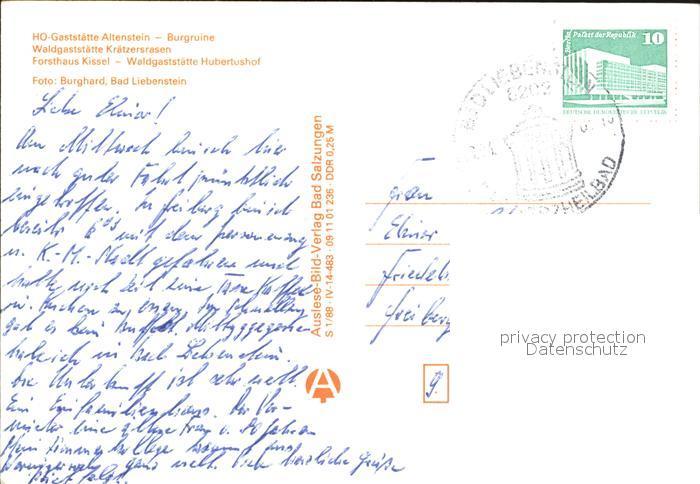 HO-Gaststätte Altenstein – Burgruine
Waldgaststätte Krätzersrasen
Forsthaus Kissel – Waldgaststätte Hubertushof
Foto: Burghard, Bad Liebenstein
Liebe Elmar!
Am Mittwoch bin ich hier
nach guter Fahrt pünktlich
eingetroffen. In Freiberg bin ich
bereits mit dem Personenzug
n. K.-M.-Stadt gefahren und
hatte noch Zeit eine Tasse Kaffee
u. Kuchen zu
gab es kein Mittaggegessen
habe ich in Bad Liebenstein.
Die Unterkunft ist sehr nett.
Ein Einfamilienhaus. Die Ver-
mieter eine ältere Frau v. 80 Jahren
Mein Zimmerkollege
ganz nett. Viele herzliche Grüße
Auslese-Bild-Verlag Bad Salzungen
S 1/88 · IV-14-483 · 09 11 01 236 · DDR 0,25 M
A
Berlin, Palast der Republik
10
DEUTSCHE DEMOKRATISCHE REPUBLIK
BAD LIEBENSTEIN
6202
HEILBAD
Elmar
Friedeb
Freiberg
9.
privacy protection
Datenschutz